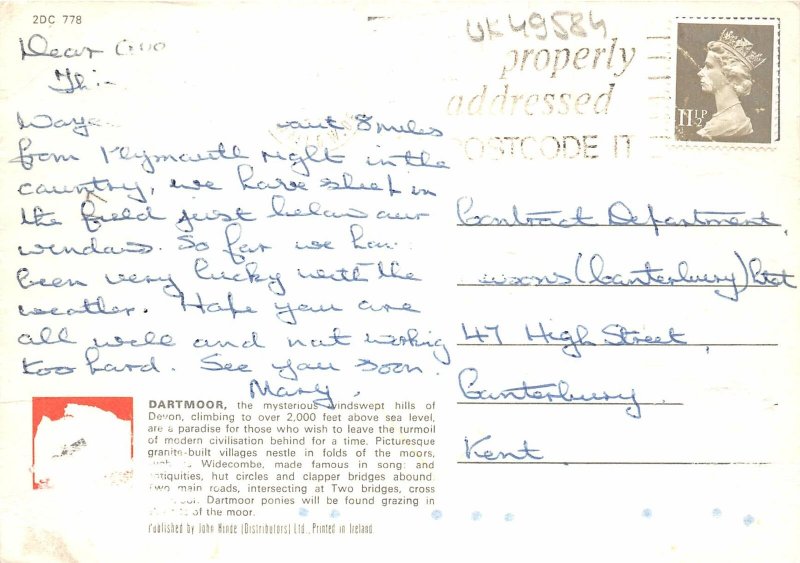 2DC 778
UK49584
properly
addressed
POSTCODE IT
11½P
Dear
Thi
Waye
8 miles
from Plymouth right in the
country, we have sheep in
the field just below our
windows. So far we hav
been very lucky with the
weather. Hope you are
all well and not working
too hard. See you soon.
Mary.
Contract Department,
wsons (Canterbury) Ltd
47 High Street,
Canterbury.
Kent
DARTMOOR, the mysterious windswept hills of
Devon, climbing to over 2,000 feet above sea level,
are a paradise for those who wish to leave the turmoil
of modern civilisation behind for a time. Picturesque
granite-built villages nestle in folds of the moors,
Widecombe, made famous in song; and
antiquities, hut circles and clapper bridges abound.
Two main roads, intersecting at Two bridges, cross
Dartmoor ponies will be found grazing in
of the moor.
Published by John Hinde (Distributors) Ltd., Printed in Ireland